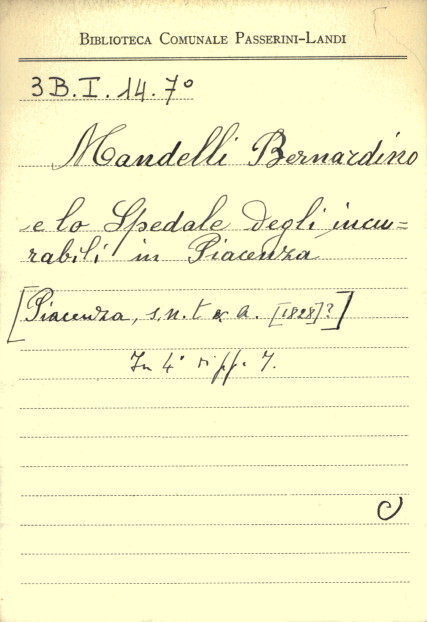 BIBLIOTECA COMUNALE PASSERINI-LANDI
3 B. I. 14. 7º
Mandelli Bernardino
e lo Spedale degli incu=
rabili in Piacenza
[Piacenza, s. n. t. & a. [1828]?]
In 4° di pp. 7.